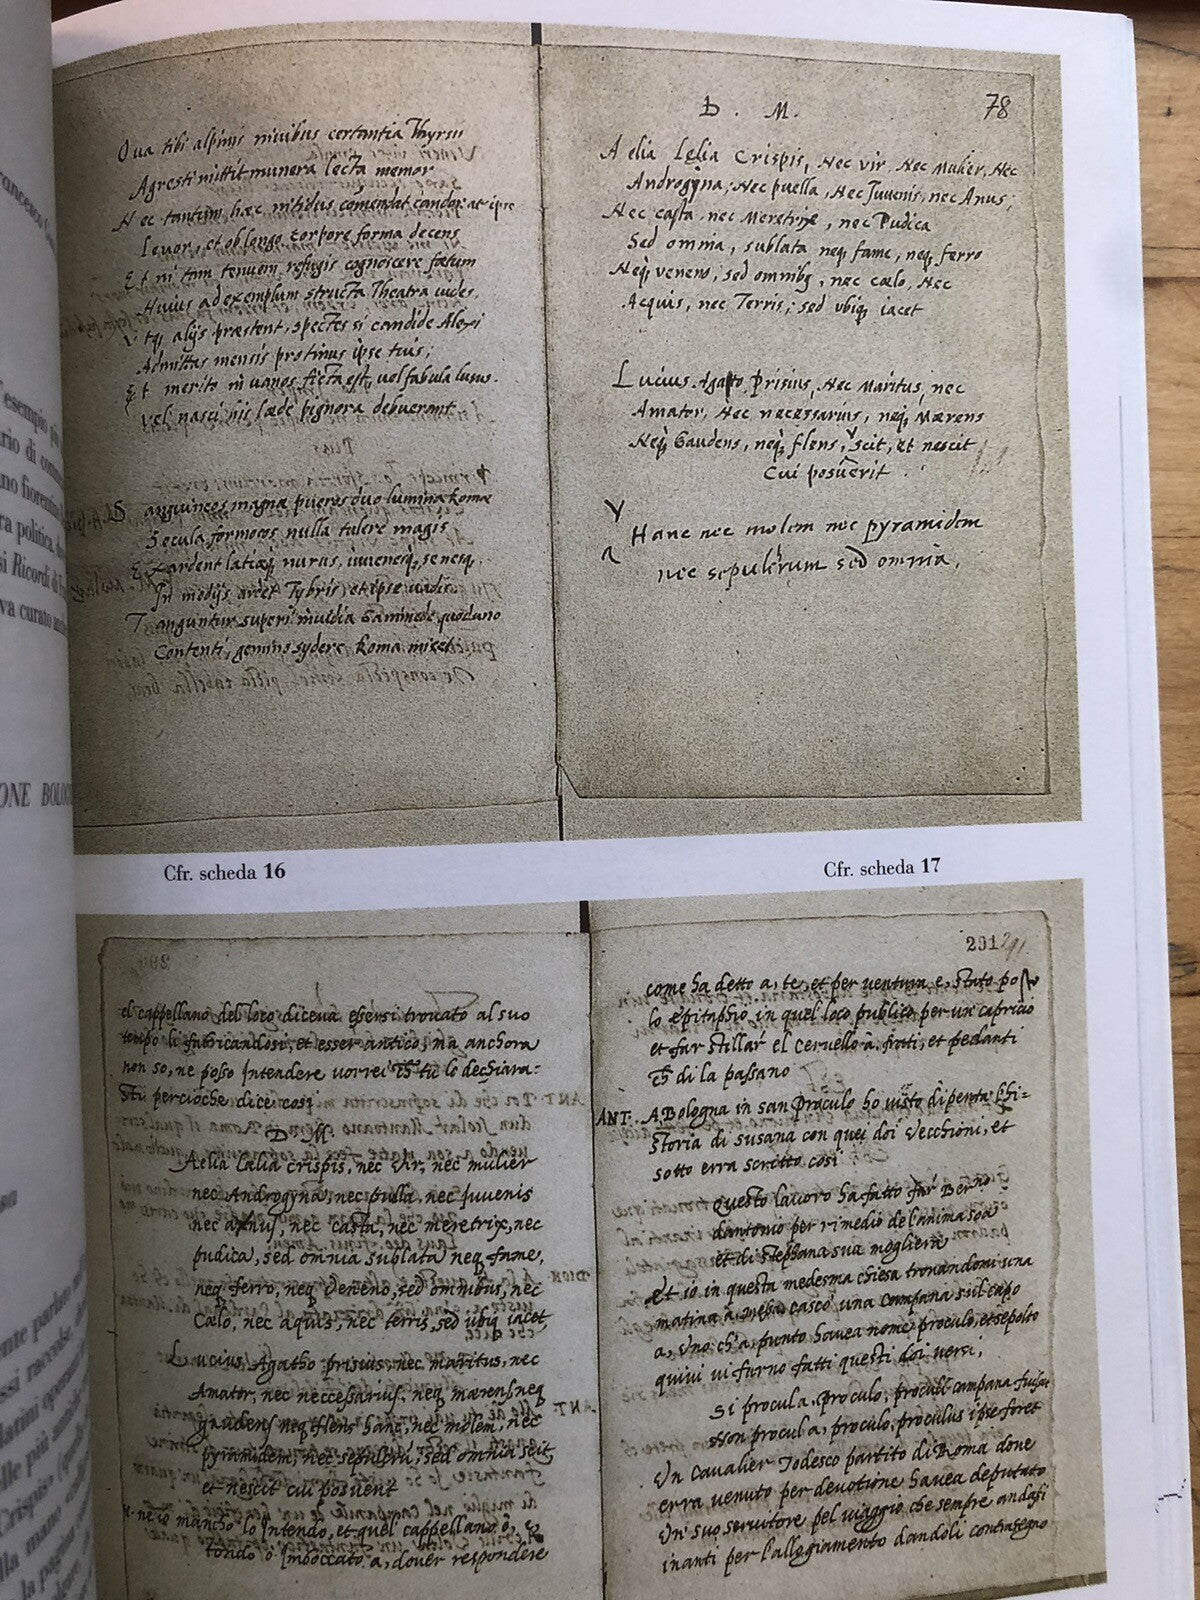 Ova tibi alpinis nivibus certantia Thyrsis
Agresti mittit munera lecta memor
Nec tantum hæc nitidus comendat candor: at ipse
Levor, et oblongo corpore forma decens
Et ni tam tenuem refugis cognoscere fœtum
Huius ad exemplum structa Theatra vides.
aliis præstent, spectes si candide Alexi
Admittas mensis protinus ipse tuis;
Et merito ni vanos ficta est, vel fabula lusus.
Vel nasci his Læde pignora debuerant.
Sanguineos magnæ pueros duo lumina Romæ
Secula formosos nulla tulere magis
ardent latiæq nurus, iuvenesq, senesq,
In medijs ardet Tybris, et ipse vadis
Tanguntur superi invidia Ganimede quod uno
Contenti, gemino sydere Roma
78
D. M.
Aelia Lelia Crispis, Nec vir, Nec Mulier, Nec
Androgyna; Nec puella, Nec Juvenis, nec Anus;
Nec casta, nec Meretrix, nec Pudica
Sed omnia, sublata neq, fame, neq, ferro
Neq, veneno, sed omnibq, nec cœlo, Nec
Acquis, nec Terris; sed ubiq, iacet
Lucius Agatto Prisius, Nec Maritus, nec
Amator, Nec necessarius, neq, Mærens
Neq, Gaudens, neq, flens, scit, et nescit
Cui posuerit
Hanc nec molem nec pyramidem
nec sepulcrum sed omnia,
Cfr. scheda 16
Cfr. scheda 17
el cappellano del loco diceva essersi trovato al suo
tempo li fabricandosi, et esser antico, ma anchora
non so, ne posso Intendere vorrei ch tu lo dechiara-
sti percioche dice cosi
D. M.
Aelia Lælia crispis, nec vir, nec mulier
nec Androgyna, nec puella, nec Juvenis
nec anus, nec casta, nec meretrix, nec
pudica, sed omnia sublata neq. fame,
neq, ferro, neq Veneno, sed omnibus, nec
Cœlo, nec aquis, nec terris, sed ubiq iacet
Lucius Agatho prisius nec maritus, nec
Amator, nec neccessarius, neq, mærens neq
gaudens neq flens hanc, nec molem, nec
pyramidem, nec sepulcru, sed omnia scit
et nescit cui posuerit
ne io mancho lo Intendo, et quel cappellano o, e
tondo o Imboccato a, dover respondere
291
come ha detto a, te, et per ventura e, stato
lo epitaphio in quel loco publico per un capricio
et far stillar el cervello a, frati, et pedanti
ch di la passano
ANT. A Bologna in san Proculo ho visto dipenta Lhi-
storia di susana con quei doi Vecchioni, et
sotto erra scritto cosi
Questo lavoro ha fatto far Berno
dantonio per rimedio de lanima soa
et di stephana sua mogliera
et io in questa medesma chiesa trovandomi una
matina a messa casco una campana sul capo
a, uno ch a punto havea nome proculo, et sepolto
quivi vi furno fatti questi doi versi,
Si procul a, proculo, proculi campana fuisset
Non procul a, proculo, proculus ipse foret
Un Cavalier Todesco partito di Roma dove
erra venuto per devotione havea deputato
Un suo servitore pel viaggio che sempre andasi
inanti per l'allogiamento dandoli contrasegno